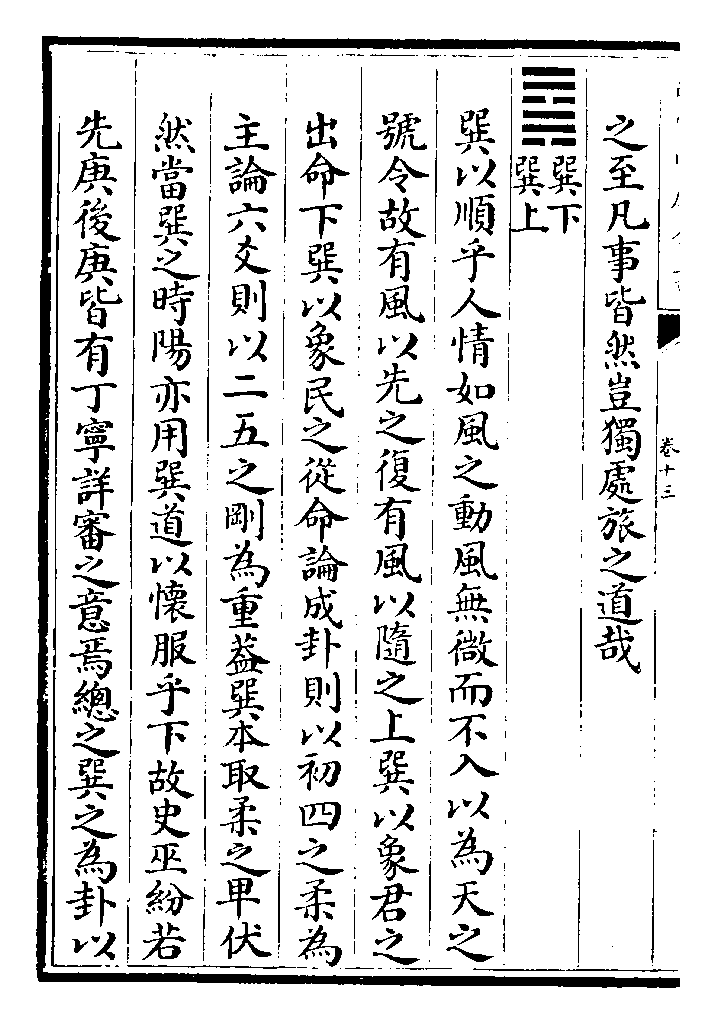 卷十三
之至凡事皆然豈獨處旅之道哉
巽下
巽上
巽以順乎人情如風之動風無微而不入以為天之
號令故有風以先之復有風以隨之上巽以象君之
出命下巽以象民之從命論成卦則以初四之柔為
主論六爻則以二五之剛為重葢巽本取柔之卑伏
然當巽之時陽亦用巽道以懷服乎下故史巫紛若
先庚後庚皆有丁寧詳審之意焉總之巽之為卦以